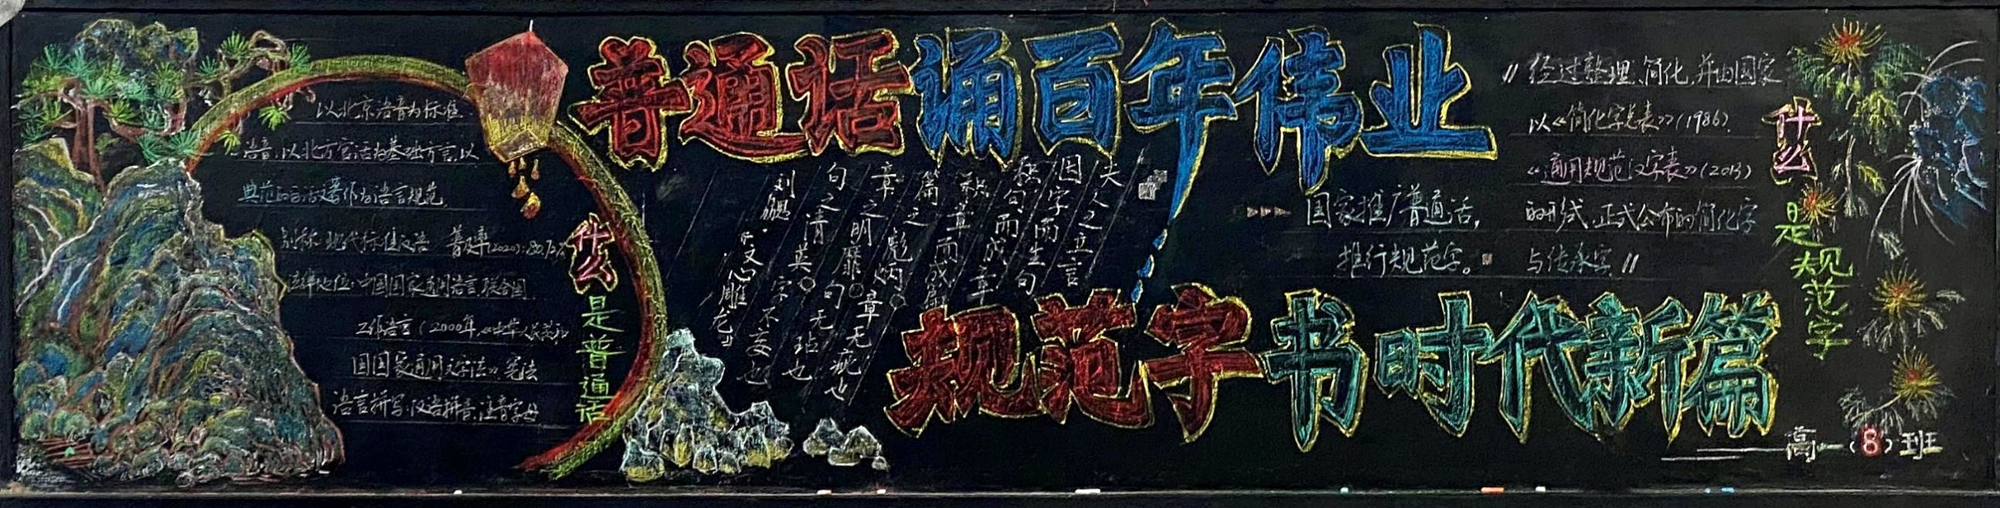 普通话诵百年伟业
规范字书时代新篇
什么是普通话
以北京语音为标准
语音，以北方官话为基础方言，以
典范的白话文著作为语言规范
别称：现代标准汉语 普及率(2020):80.7%
法律地位：中国国家通用语言 联合国
工作语言（2000年，《中华人民共和
国国家通用文字法》宪法
语言拼写：汉语拼音，注音字母
夫人之立言
因字而生句
积句而成章
积章而成篇
篇之彪炳。
章之明靡。章无疵也
句之清英。句无玷也
字不妄也
刘勰·《文心雕龙》
国家推广普通话，
推行规范字。
什么是规范字
"经过整理、简化，并由国家
以《简化字总表》(1986)
《通用规范汉字表》(2013)
的形式，正式公布的简化字
与传承字"
高一(8)班